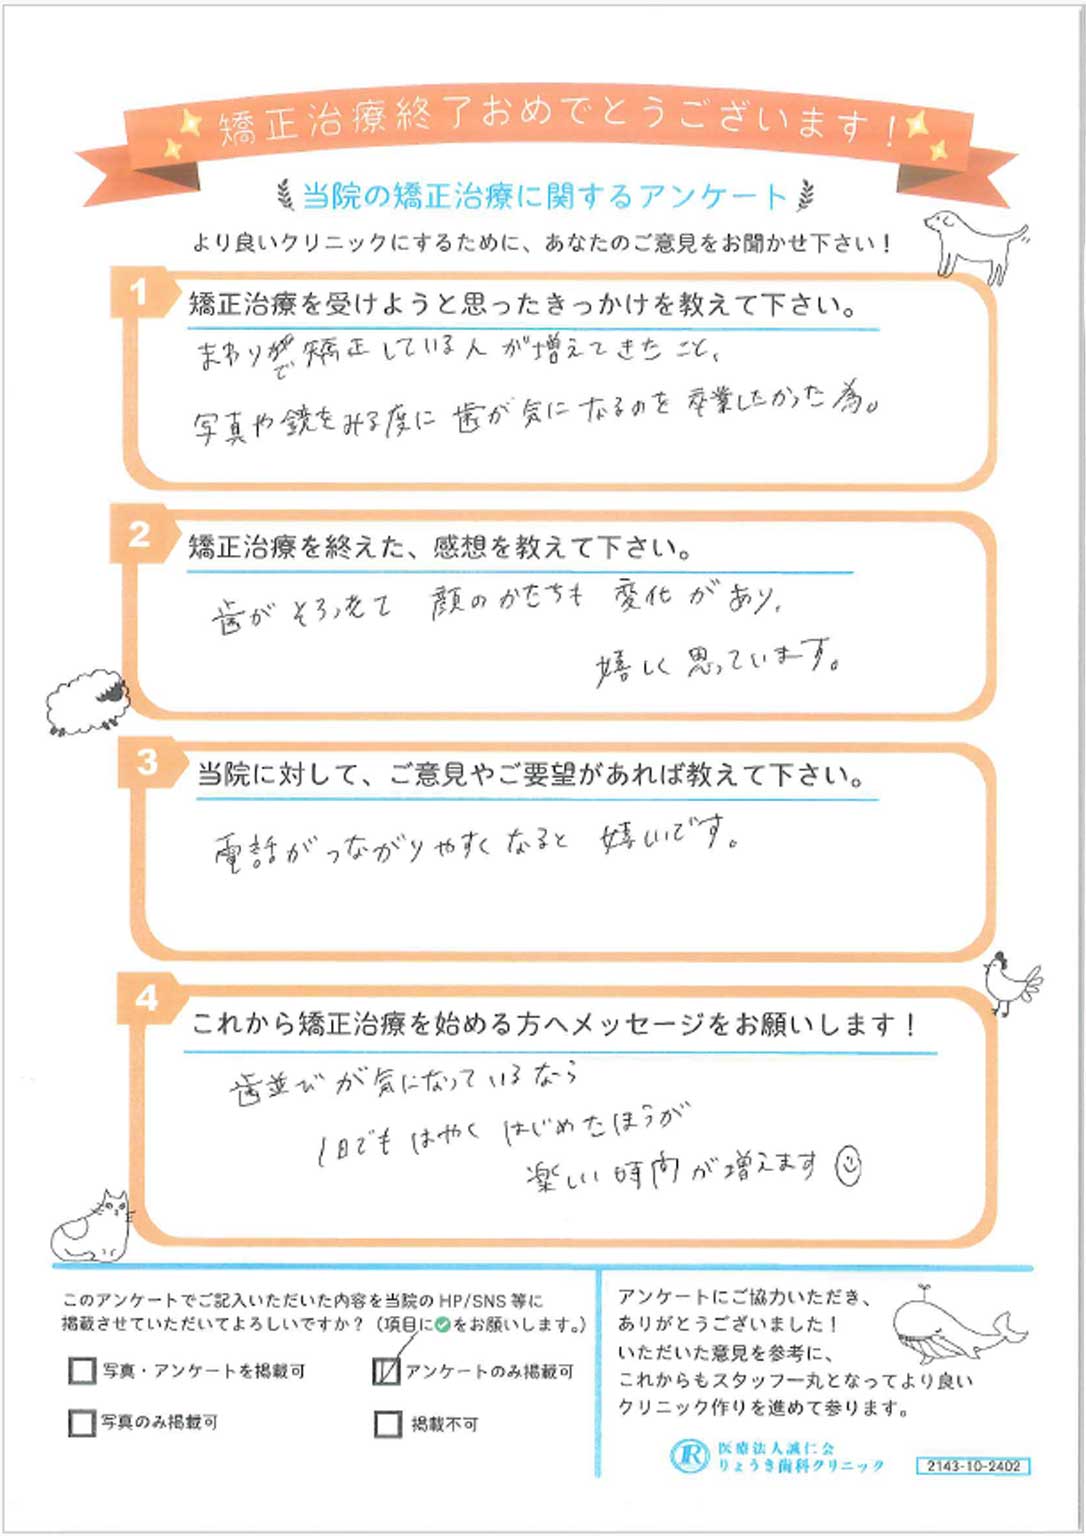 矯正治療終了おめでとうございます！
当院の矯正治療に関するアンケート
より良いクリニックにするために、あなたのご意見をお聞かせ下さい！
1
矯正治療を受けようと思ったきっかけを教えて下さい。
まわりで矯正している人が増えてきたこと、
写真や鏡をみる度に歯が気になるのを卒業したかった為。
2
矯正治療を終えた、感想を教えて下さい。
歯がそろって 顔のかたちも 変化があり、
嬉しく思っています。
3
当院に対して、ご意見やご要望があれば教えて下さい。
電話がつながりやすくなると 嬉しいです。
4
これから矯正治療を始める方へメッセージをお願いします！
歯並びが気になっているなら
1日でもはやく はじめたほうが
楽しい時間が増えます
このアンケートでご記入いただいた内容を当院の HP/SNS 等に
掲載させていただいてよろしいですか？（項目に✓をお願いします。）
写真・アンケートを掲載可
アンケートのみ掲載可
写真のみ掲載可
掲載不可
アンケートにご協力いただき、
ありがとうございました！
いただいた意見を参考に、
これからもスタッフ一丸となってより良い
クリニック作りを進めて参ります。
医療法人誠仁会
りょうき歯科クリニック
2143-10-2402